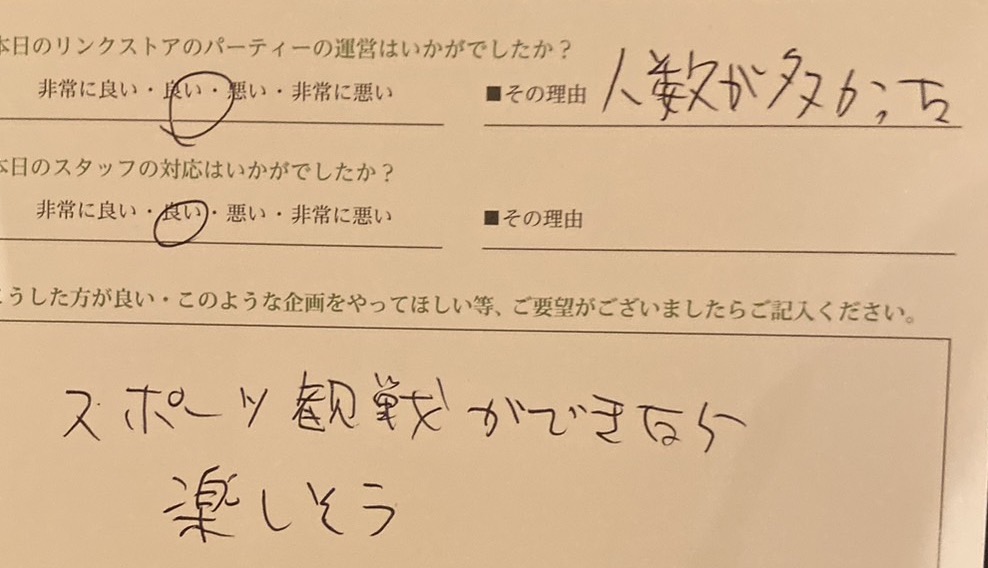 本日のリンクストアのパーティーの運営はいかがでしたか？
非常に良い・良い・悪い・非常に悪い ■その理由 人数が多かった
本日のスタッフの対応はいかがでしたか？
非常に良い・良い・悪い・非常に悪い ■その理由
こうした方が良い・このような企画をやってほしい等、ご要望がございましたらご記入ください。
スポーツ観戦ができたら
楽しそう